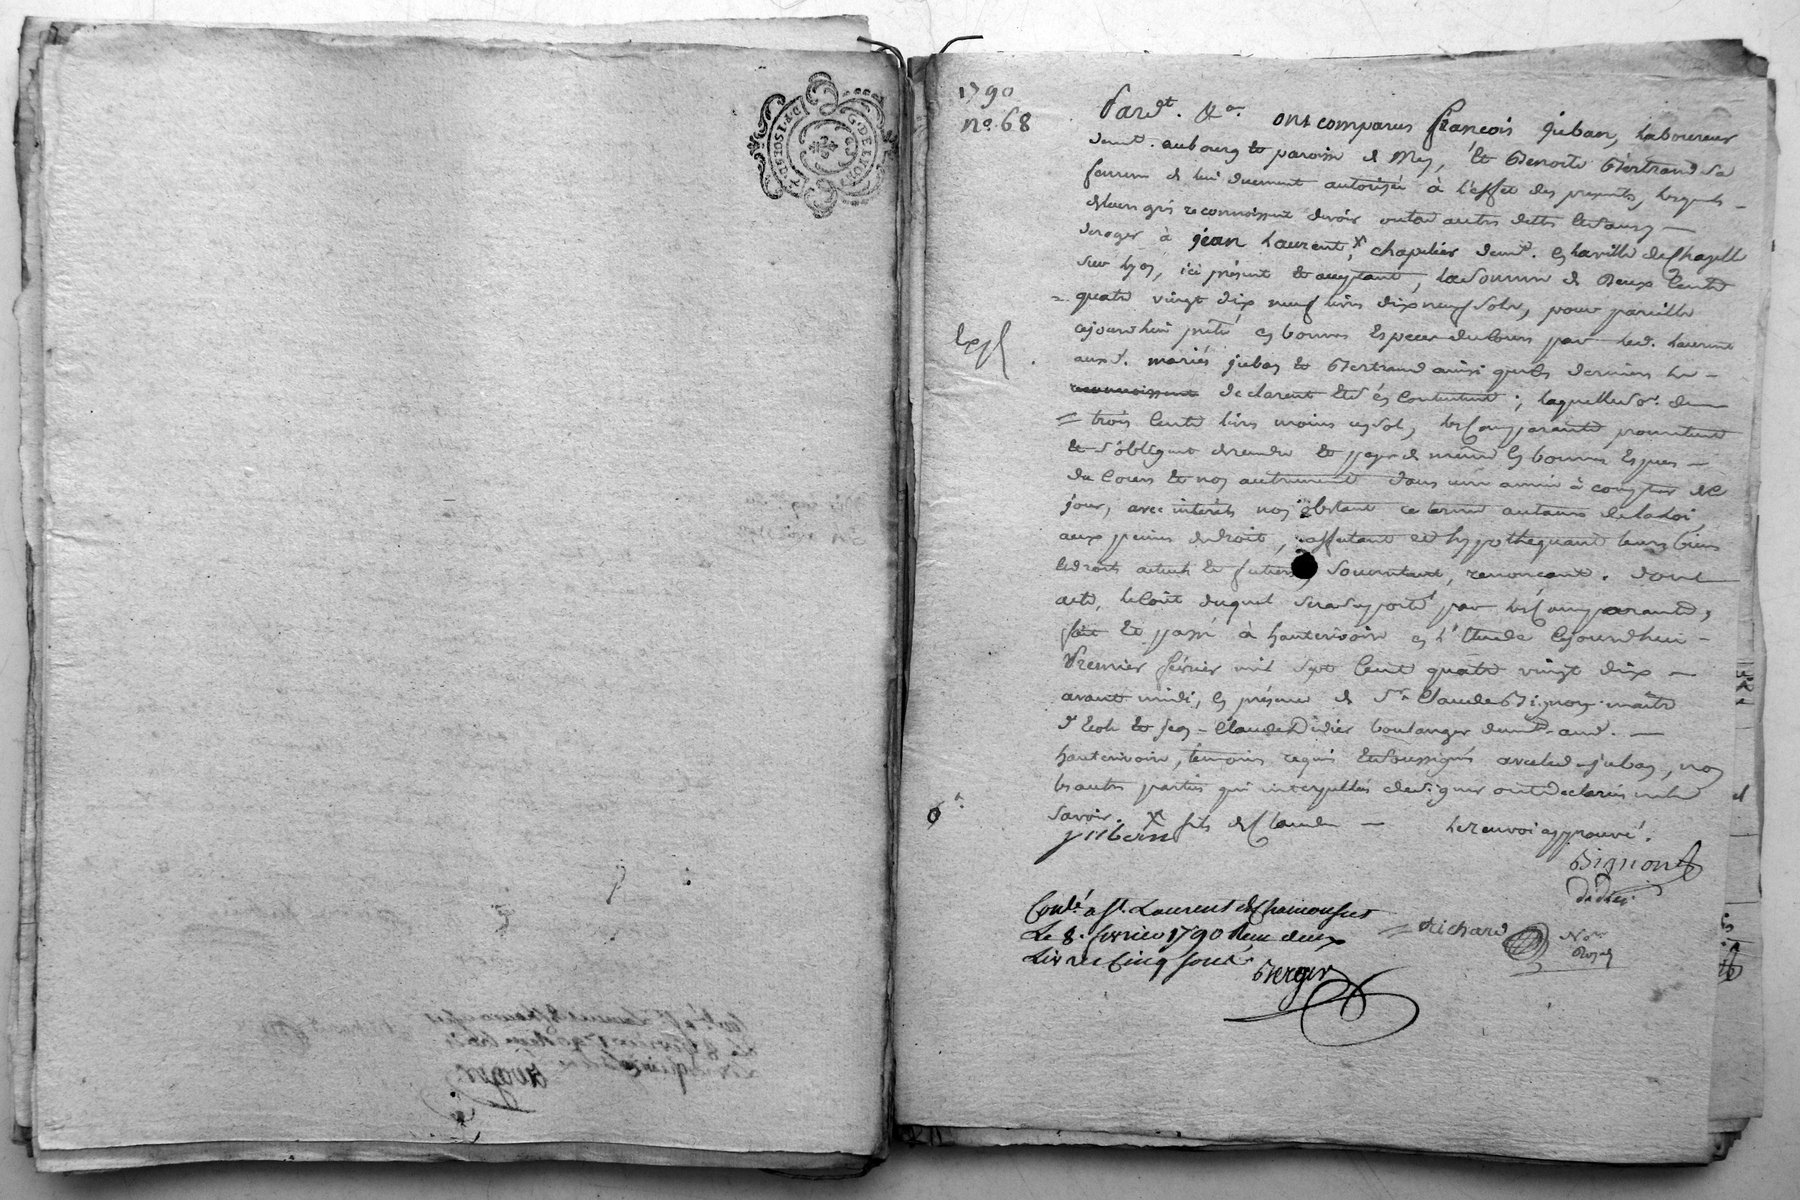 G. DE LYON
1790
no. 68
Pardt. &a. ont comparus françois juban, Laboureur
demt. au bourg & paroisse de Mys, & Benoite Bertrand sa
femme de lui duement autorisée à l'effet des presents, lesquels -
de leurs grés reconnoissent devoir outre autres dettes & sans y -
deroger à jean Laurent, x chapelier demt. en la ville de Chazelle
sur Lyon, ici présent & acceptant, la somme de Deux Cents
quatre vingt dix neuf livres dix neuf sols, pour pareille
ajourdhui prêté en bonnes Especes du Cours par led. Laurent
Expé
auxd. mariés juban & Bertrand ainsi que ces derniers le -
reconnoissent declarent & s'en Contentent ; laquelle so. de
= trois Cents livres moins un sol, les Comparants promettent
& s'obligent de rendre & payer de même en bonnes Espèces -
du Cours & non autrement dans une année à compter de ce
jour, avec intérêts nonobstant ce terme au taux de la loi,
aux peines de droit, affectant et hypothequant leurs biens
& droits actuels & futurs, soumettant, renonçant. dont
acte, le Coût duquel sera supporté par les Comparants,
fait & passé à hauterivoire en l'Etude Cejourdhui -
Premier février mil sept Cent quatre vingt dix -
avant midi, en présence de Sr. Claude Bignon maitre
d'Ecole & Claude Didier boulanger demt. aud. -
hauterivoire, témoins requis & soussignés avec led. juban, non
les autres parties qui interpellées de signer ont declaré ne le
savoir. x fils de Claude - le renvoi approuvé.
Bignon
didier
Conlé. a St. Laurent de Chamousset
Le 8. fevrier 1790 Reçu deux
Livres Cinq sous
Berger
= Richard
Nore
Royal